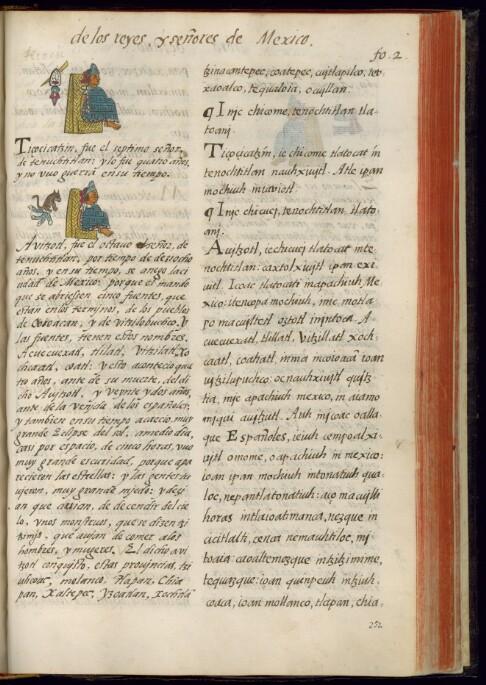 de los reyes, y señores de Mexico.
fo. 2.
Tiçocicatzin, fue el septimo señor,
de tenuchtitlan: y lo fue quatro años,
y no vuo guerra en su tiempo.
Avitzotl, fue el octauo señor, de
tenuchtitlan, por tiempo de desocho
años. y en su tiempo, se anego la ci
udad de Mexico: porque el mando
que se abriessen cinco fuentes, que
estan en los terminos, de los pueblos
de Coyoacan, y de Vitzilobuchco. Y
las fuentes, tienen estos nombres.
Acuecuexatl, tlilatl, Vitzilatl, Xo
chcaatl, coatl: y esto acontecio qua
tro años, ante de su muerte, del di
cho Auitzotl. y veynte y dos años,
ante, de la venjda de los españoles:
y tambien en su tiempo acaecio, muy
grande Eclipse del sol, a medio dia,
casi por espacio, de cinco horas, vuo
muy grande escuridad, porque apa
recieron las estrellas: y las gentes tu
uieron, muy grande mjedo: y dezi
an que avian, de decendir del cie
lo. vnos monstruos, que se dizen tzi
tzimis, que aujan de comer a los
hombres, y mugeres. El dicho avi
tzotl conquisto, estas prouincias, tzi
uhcoac, molanco, tlapan, Chia
pan, Xaltepec, Yzoatlan, xochtla
tzinacantepec, coatepec, cujtlapilco, teu
xaoalco, tequaloia, ocujllan.
¶ Injc chicome, tenochtitlan tla-
toanj.
Tiçocicatzin, ic chicome tlatocat in
tenochtitlan nauhxiujtl. Atle ipan
mochiuh in iaoiotl.
¶ Injc chicuej, tenochtitlan tlato
anj.
Aujtzotl, ic chicuej tlatocat in te
nochtitlan: caxtolxiujtl ipan exi
ujtl. Icoac tlatocati in apachiuh Me
xico: itenopa mochiuh, injc motla
po macujlteitl oztotl injntoca. A
cuecuexatl, tlillatl, Vitzillatl xoch
caatl, coahatl, injn a in coioacã ioan
ujtzilupuchco: oc nauhxiujtl qujtz
tia, injc apachiuh mexico, in aiamo
mjquj aujtzutl. Auh injcoac oalla-
que Españoles, ie iuh cempoalxi-
ujtl omome, o apachiuh in mexico:
ioan ipan mochiuh in tonatiuh qua-
loc, nepantla tonatiuh: aço macujlli
horas in tlaioatimanca, nezque in
cicitlalti, cenca nemauhtiloc, mj
toaia: ca oaltemozque in tzitzimime,
tequazque: ioan quinpeuh in tziuh-
coaca, ioan mollanco, tlapan, chia-
252